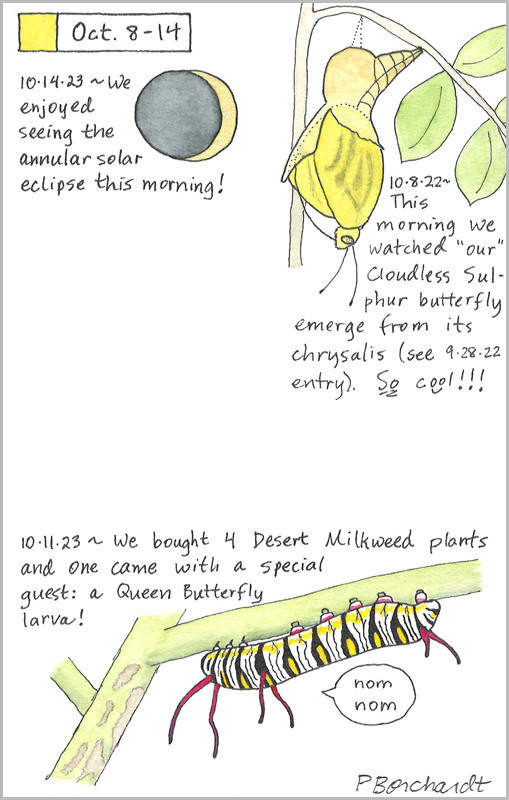 Oct. 8-14
10.14.23 ~ We
enjoyed
seeing the
annular solar
eclipse this morning!
10.8.22~
This
morning we
watched "our"
Cloudless Sul-
phur butterfly
emerge from its
chrysalis (see 9.28.22
entry). So cool!!!
10.11.23 ~ We bought 4 Desert Milkweed plants
and one came with a special
guest: a Queen Butterfly
larva!
nom
nom
P Borchardt